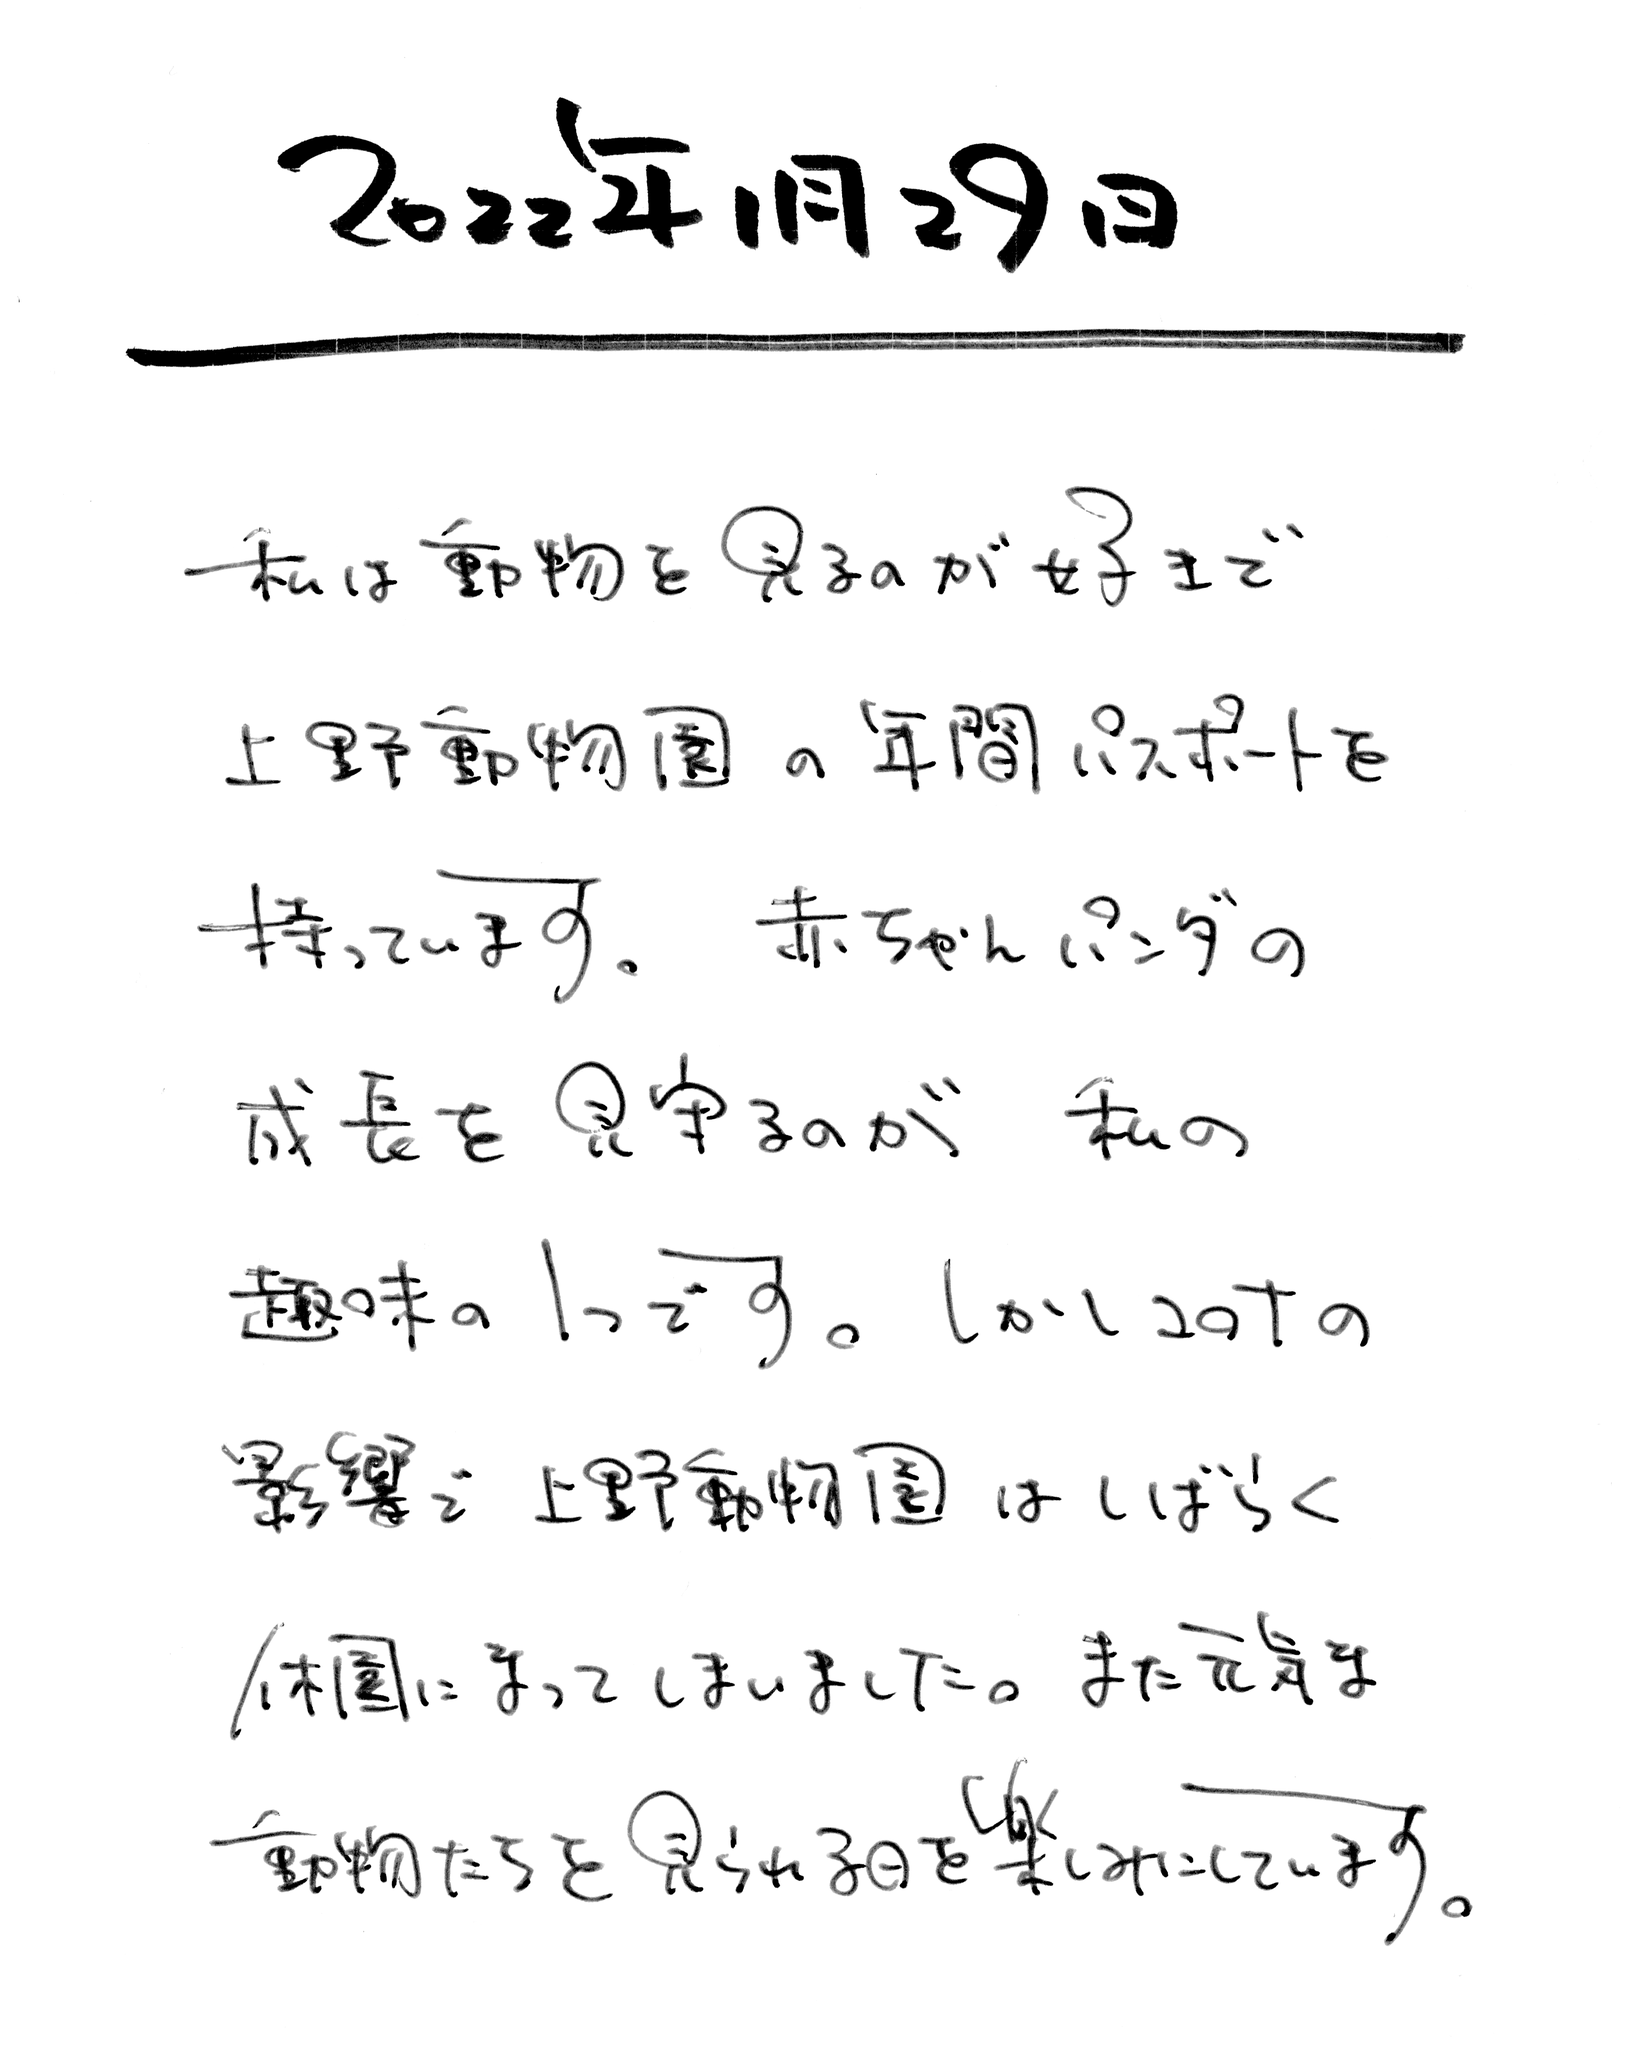 2022年1月29日
私は動物を見るのが好きで
上野動物園の年間パスポートを
持っています。赤ちゃんパンダの
成長を見守るのが私の
趣味の1つです。しかしコロナの
影響で上野動物園はしばらく
休園になってしまいました。また元気な
動物たちを見られる日を楽しみにしています。